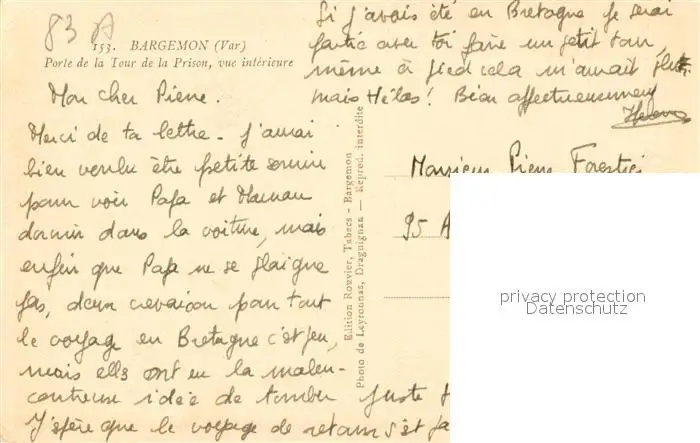 83 A
153. BARGEMON (Var)
Porte de la Tour de la Prison, vue intérieure
Mon cher Pierre.
Merci de ta lettre. J'aurai
bien voulu être petite souris
pour voir Papa et Maman
dormir dans la voiture, mais
enfin que Papa ne se plaigne
pas, deux crevaison pour tout
le voyage en Bretagne c'est peu,
mais elles ont eu la malen-
contreuse idée de tomber juste
J'espère que le voyage de retour s'est
Si j'avais été en Bretagne je serai
partie avec toi faire un petit tour,
même à pied cela m'aurait plu
mais Hélas! Bien affectueusement
Edition Rouvier, Tabacs - Bargemon
Photo de Leyronnas, Draguignan — Reprod. interdite
Monsieur Pierre
95 A
privacy protection
Datenschutz